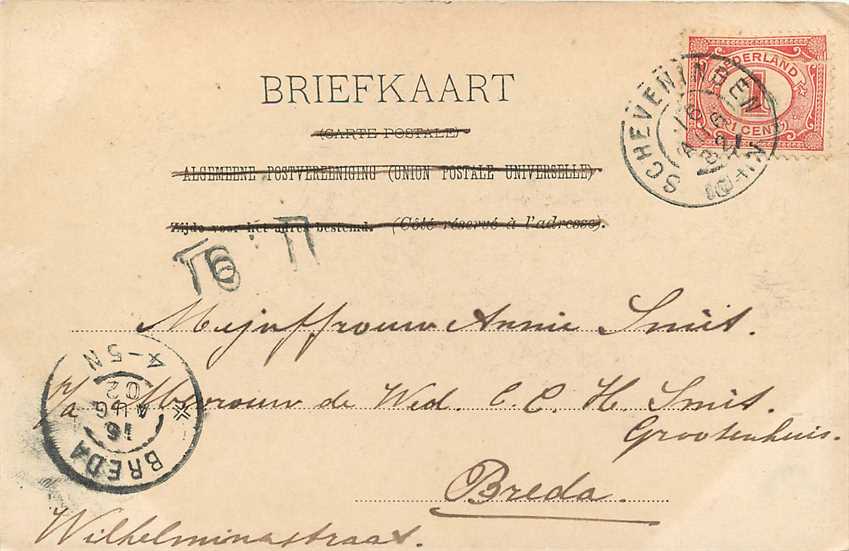 BRIEFKAART
(CARTE POSTALE)
ALGEMEENE POSTVEREENIGING (UNION POSTALE UNIVERSELLE)
Zijde voor het adres bestemd. (Côté réservé à l'adresse).
NEDERLAND
1
1 CENT
SCHEVENINGEN
16
Mejuffrouw Annie Smit.
p/a Mevrouw de Wed. C. C. H. Smit.
Grootenhuis.
Breda.
Wilhelminastraat.
BREDA
16
AUG
02
4-5N